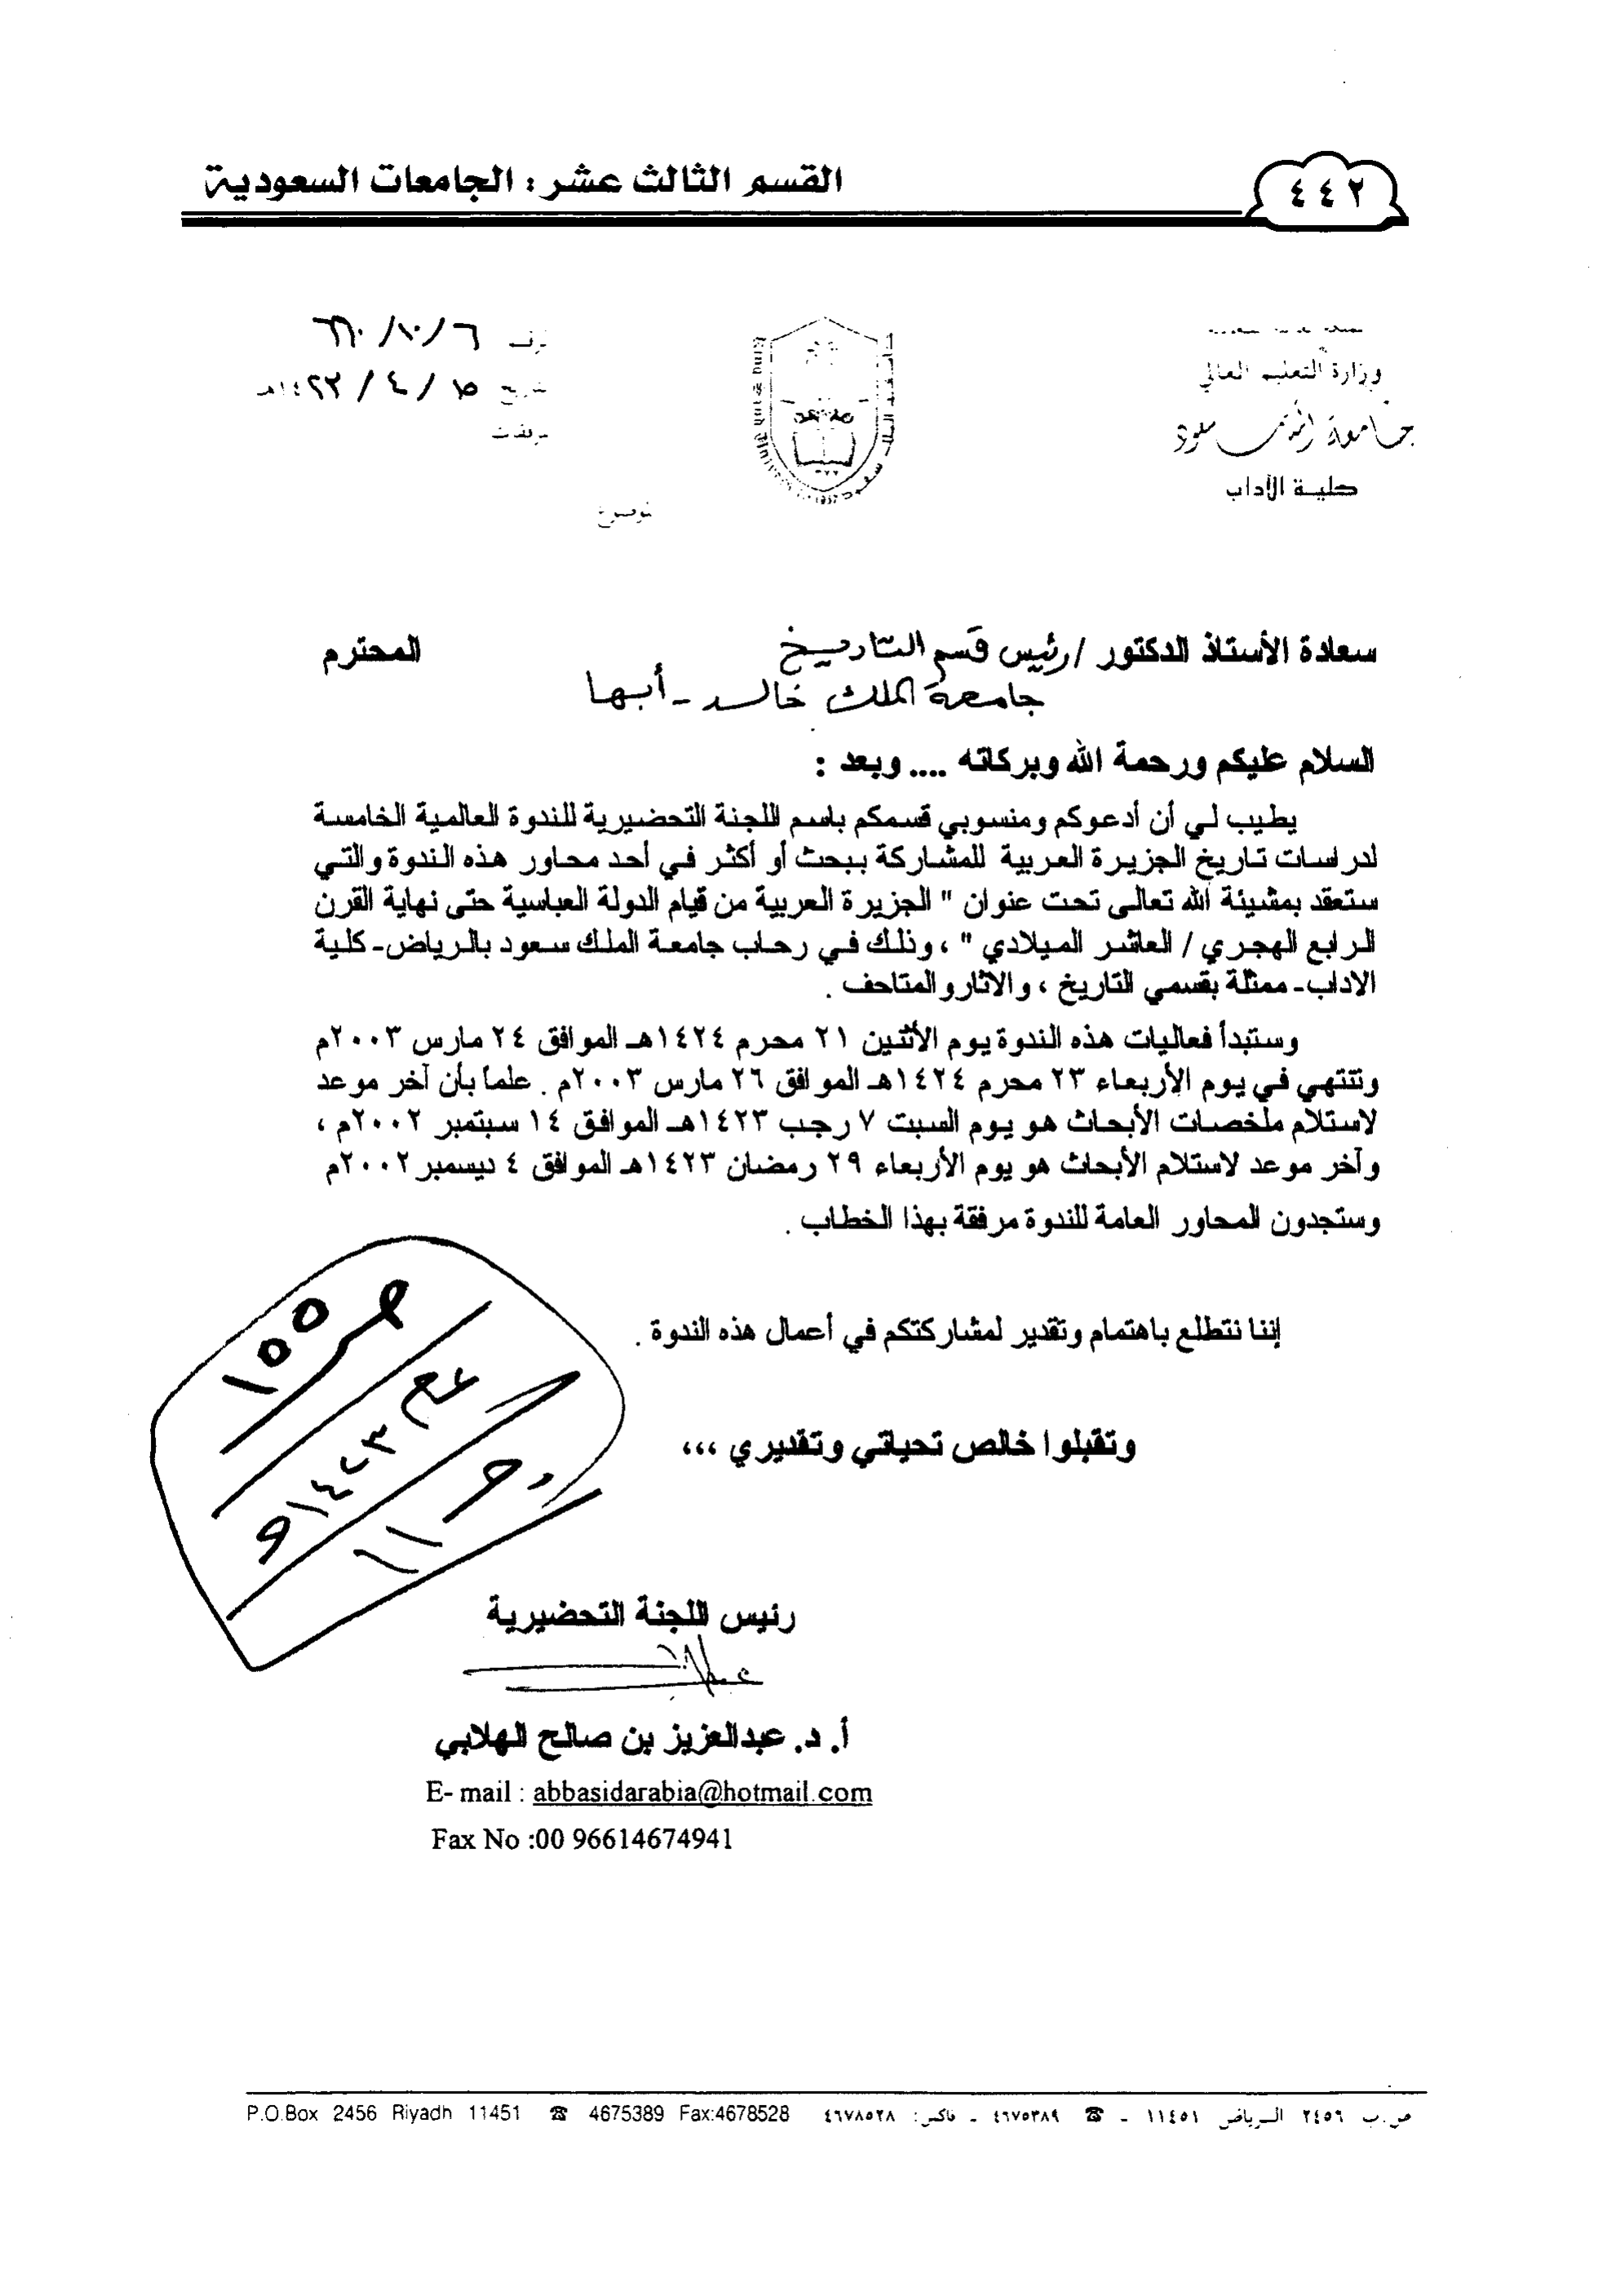 القسم الثالث عشر : الجامعات السعودية
٤٤٢
وزارة التعليم العالي
جامعة الملك سعود
كلية الآداب
سعادة الأستاذ الدكتور / رئيس قسم التاريخ المحترم
جامعة الملك خالد - أبها
السلام عليكم ورحمة الله وبركاته .... وبعد :
يطيب لي أن أدعوكم ومنسوبي قسمكم باسم اللجنة التحضيرية للندوة العالمية الخامسة
لدراسات تاريخ الجزيرة العربية للمشاركة ببحث أو أكثر في أحد محاور هذه الندوة والتي
ستعقد بمشيئة الله تعالى تحت عنوان " الجزيرة العربية من قيام الدولة العباسية حتى نهاية القرن
الرابع الهجري / العاشر الميلادي " ، وذلك في رحاب جامعة الملك سعود بالرياض- كلية
الاداب- ممثلة بقسمي التاريخ ، والاثار والمتاحف .
وستبدأ فعاليات هذه الندوة يوم الأثنين ٢١ محرم ١٤٢٤هـ الموافق ٢٤ مارس ٢٠٠٣م
وتنتهي في يوم الأربعاء ٢٣ محرم ١٤٢٤هـ الموافق ٢٦ مارس ٢٠٠٣م . علما بأن آخر موعد
لاستلام ملخصات الأبحاث هو يوم السبت ٧ رجب ١٤٢٣هـ الموافق ١٤ سبتمبر ٢٠٠٢م ،
وآخر موعد لاستلام الأبحاث هو يوم الأربعاء ٢٩ رمضان ١٤٢٣هـ الموافق ٤ ديسمبر ٢٠٠٢م
وستجدون المحاور العامة للندوة مرفقة بهذا الخطاب .
إننا نتطلع باهتمام وتقدير لمشاركتكم في أعمال هذه الندوة .
وتقبلوا خالص تحياتي وتقديري ،،،
رئيس اللجنة التحضيرية
أ. د. عبدالعزيز بن صالح الهلابي
E- mail : abbasidarabia@hotmail.com
Fax No :00 96614674941
P.O.Box 2456 Riyadh 11451 ☎ 4675389 Fax:4678528 ص.ب ٢٤٥٦ الـرياض ١١٤٥١ - ☎ ٤٦٧٥٣٨٩ - فاكس: ٤٦٧٨٥٢٨